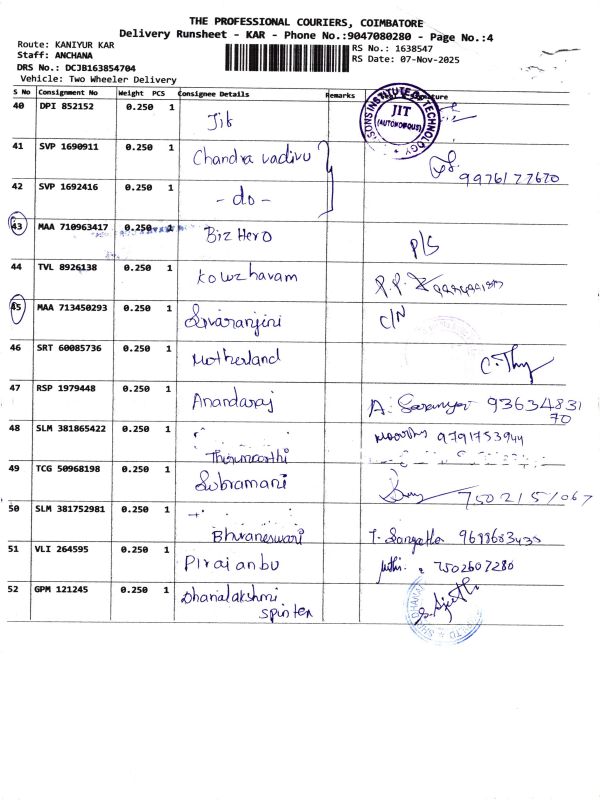 THE PROFESSIONAL COURIERS, COIMBATORE
Delivery Runsheet - KAR - Phone No.:9047080280 - Page No.:4
Route: KANIYUR KAR
Staff: ANCHANA
DRS No.: DCJB163854704
Vehicle: Two Wheeler Delivery
RS No.: 1638547
RS Date: 07-Nov-2025
S No Consignment No Weight PCS Consignee Details Remarks
40 DPI 852152 0.250 1 Jit
JIT (AUTONOMOUS) INSTITUTE OF TECHNOLOGY
41 SVP 1690911 0.250 1 Chandra vadivu
9976177670
42 SVP 1692416 0.250 1 - do -
43 MAA 710963417 0.250 1 Biz Hero P/S
44 TVL 8926138 0.250 1 Kowzhavam P.P.
45 MAA 713450293 0.250 1 Sivaranjini C/N
46 SRT 60085736 0.250 1 Motherland
47 RSP 1979448 0.250 1 Anandaraj A. Saranya 9363483170
48 SLM 381865422 0.250 1 Thirumoorthi Moorthy 9791753944
49 TCG 50968198 0.250 1 Subramani
50 SLM 381752981 0.250 1 Bhuvaneswari
51 VLI 264595 0.250 1 Piraianbu 7502607280
52 GPM 121245 0.250 1 Dhanalakshmi
spintex